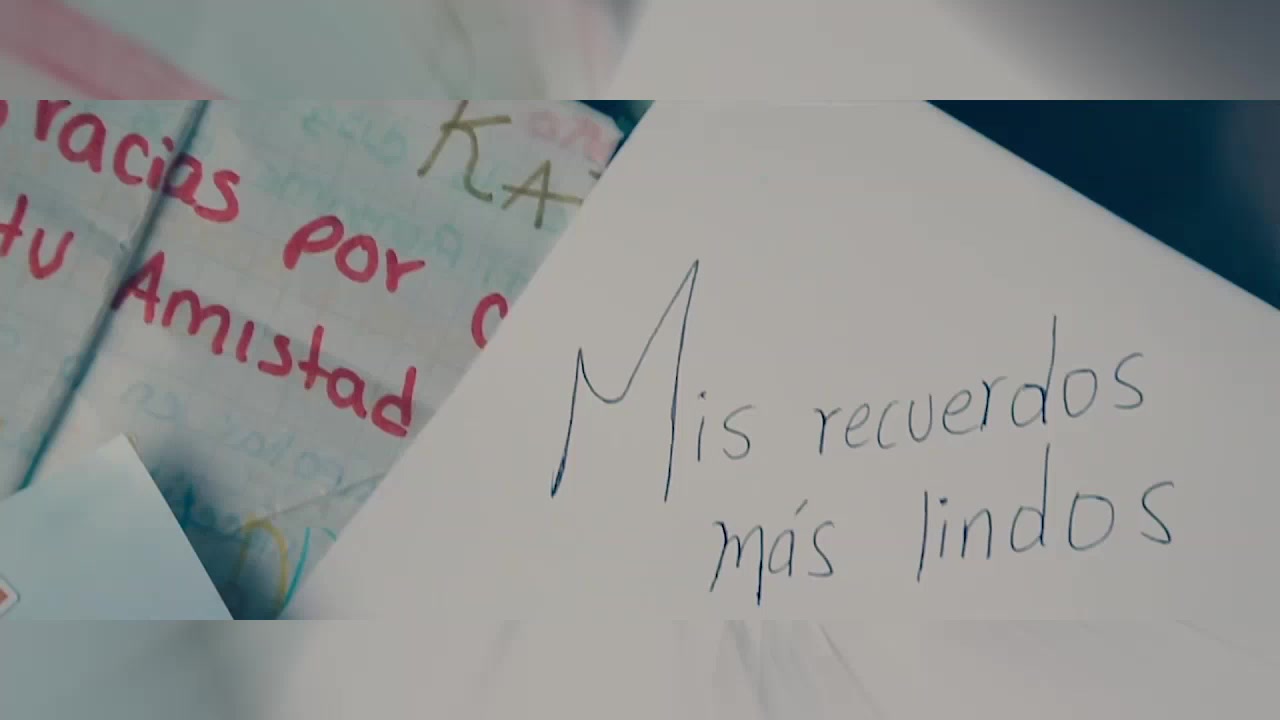 racias por
tu Amistad
KA
Mis recuerdos
más lindos